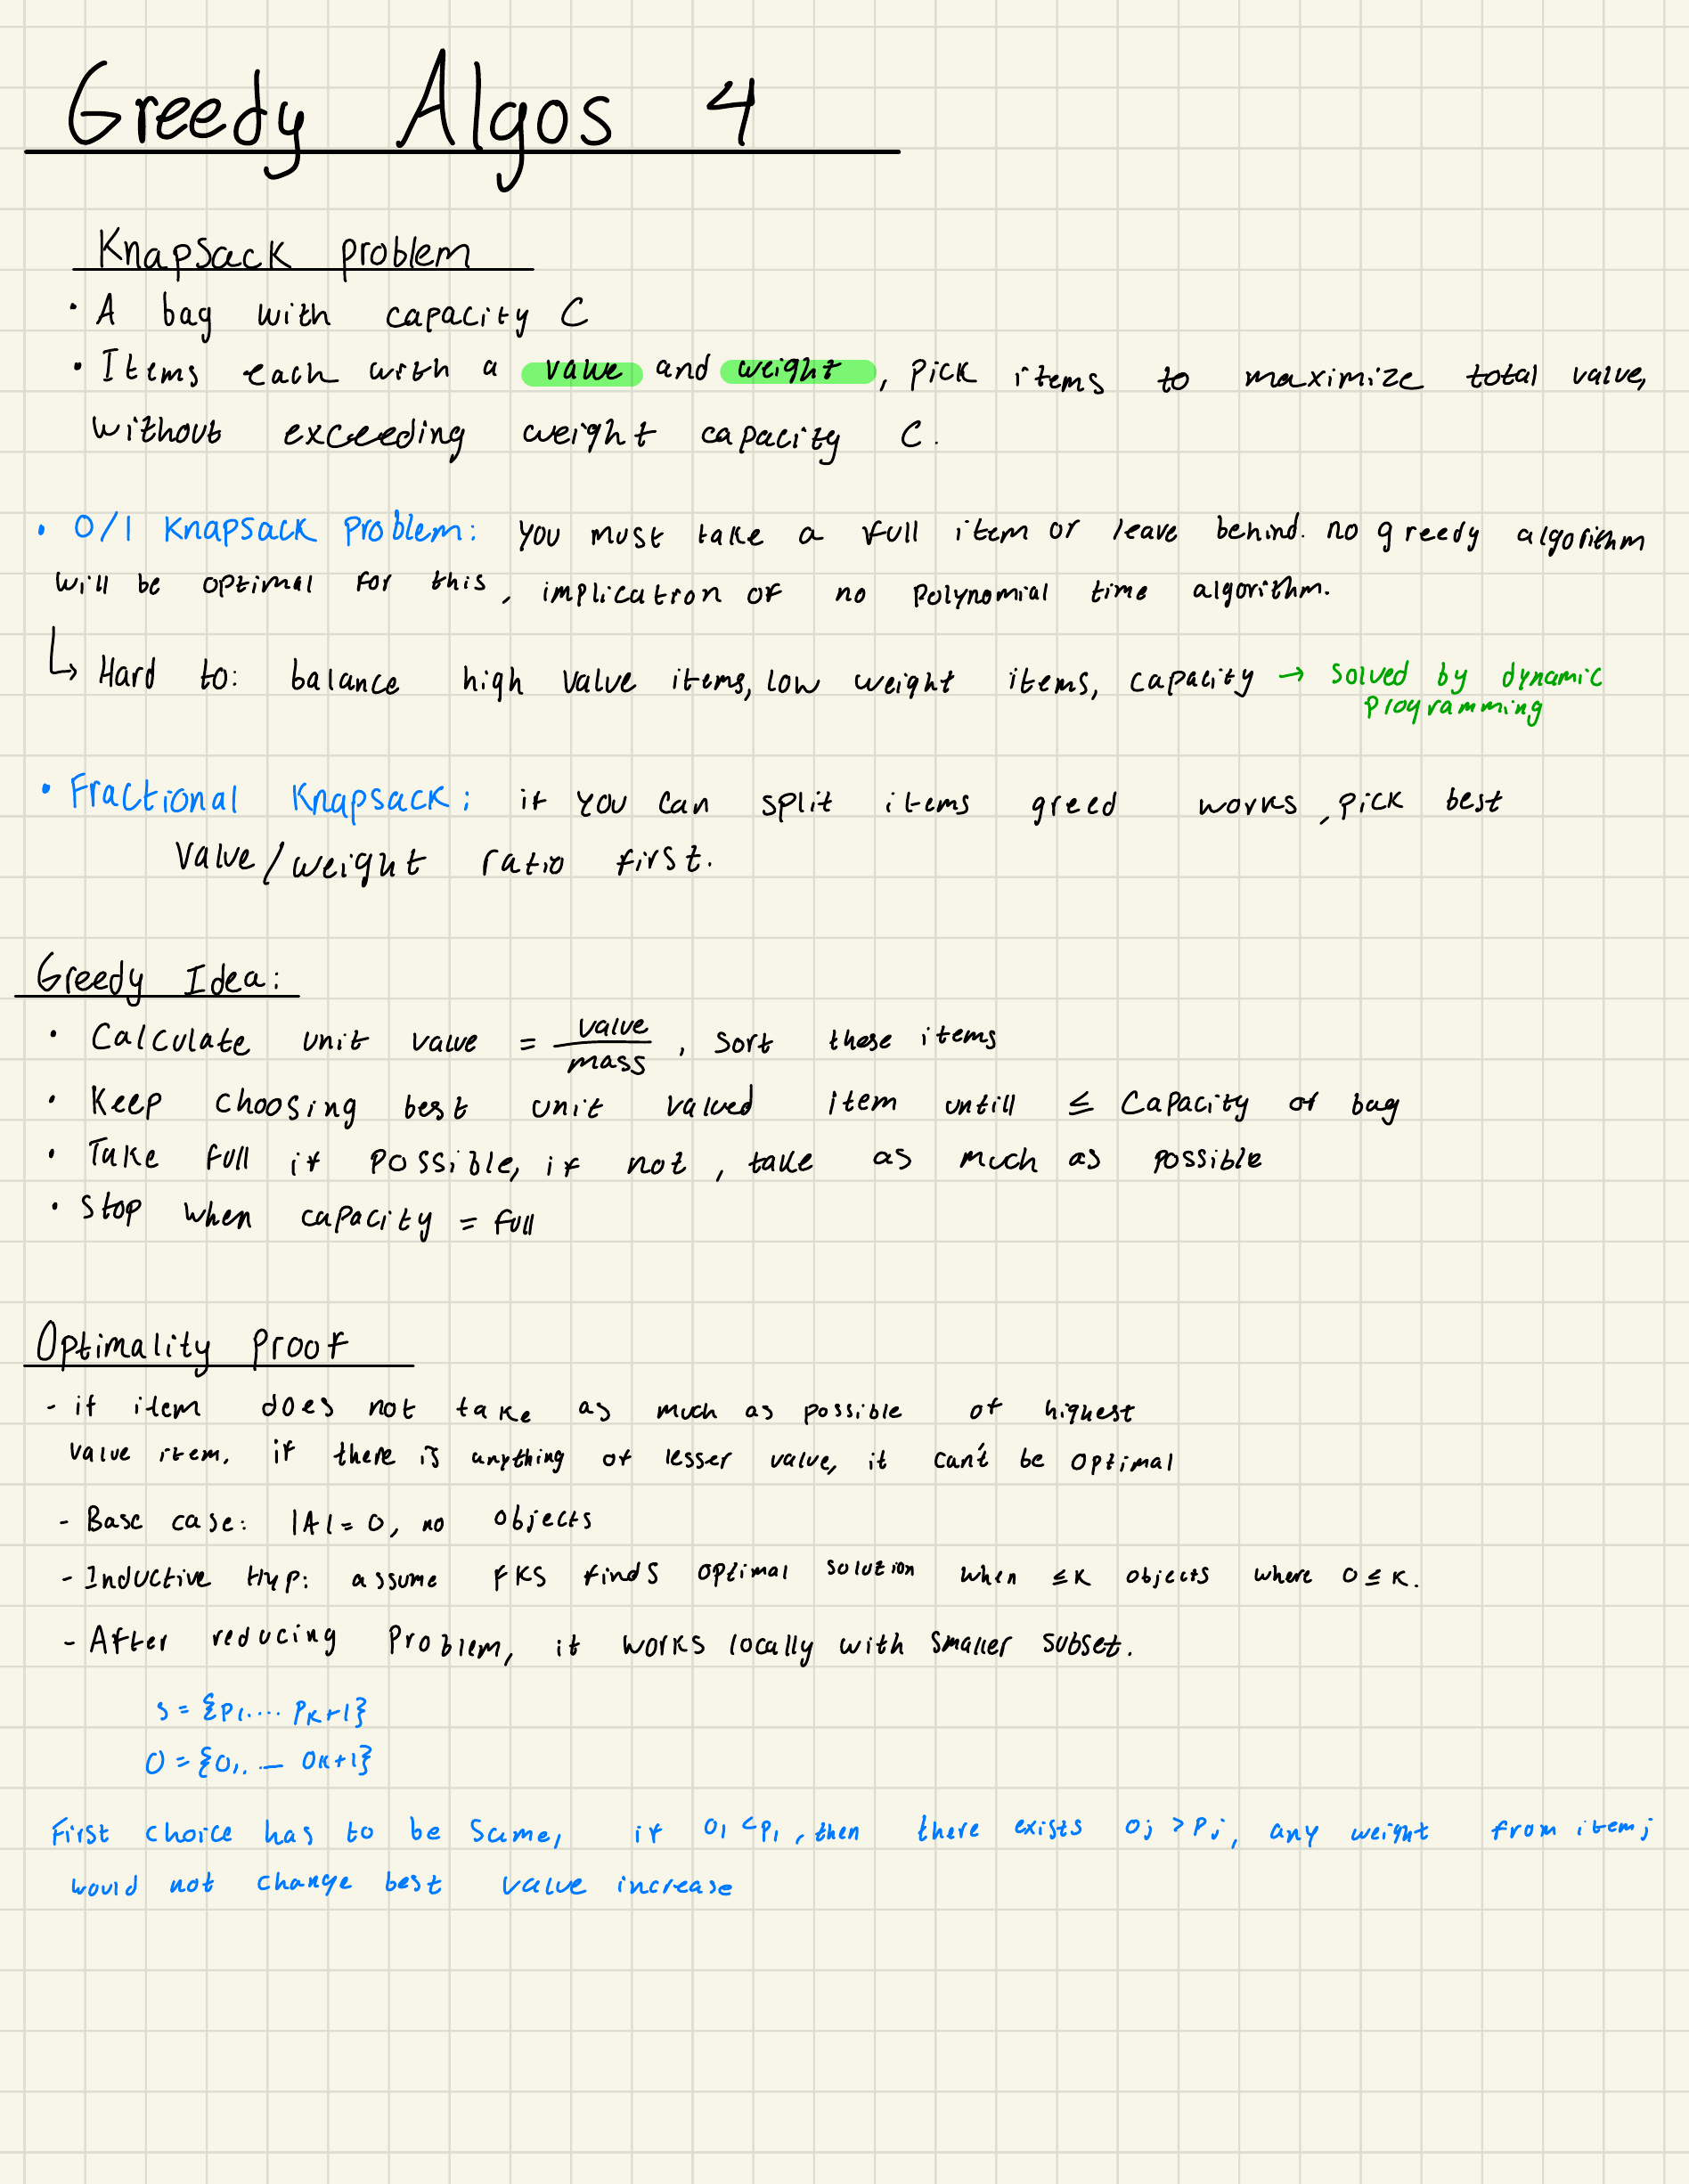 Greedy Algos 4
Knapsack problem
• A bag with capacity C
• Items each with a value and weight, pick items to maximize total value,
without exceeding weight capacity C.
• 0/1 Knapsack Problem: you must take a full item or leave behind. no greedy algorithm
will be optimal for this, implication of no polynomial time algorithm.
↳ Hard to: balance high value items, low weight items, capacity → solved by dynamic
programming
• Fractional Knapsack: if you can split items greed works, pick best
value/weight ratio first.
Greedy Idea:
• Calculate unit value = value/mass, sort these items
• Keep choosing best unit valued item untill ≤ capacity of bag
• Take full if possible, if not, take as much as possible
• Stop when capacity = full
Optimality Proof
- if item does not take as much as possible of highest
value item. if there is anything of lesser value, it can't be optimal
- Base case: |A| = 0, no objects
- Inductive Hyp: assume FKS finds optimal solution when ≤ K objects where 0 ≤ K.
- After reducing problem, it works locally with smaller subset.
S = {P1.... PK+1}
O = {O1.... OK+1}
First choice has to be same, if O1 < P1, then there exists Oj > Pj, any weight from item j
would not change best value increase